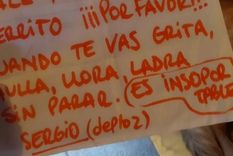 ERRITO ¡¡¡POR FAVOR!!!
UANDO TE VAS GRITA,
ULLA, LLORA, LADRA
SIN PARAR. ES INSOPOR
TABLE
SERGIO (depto2)